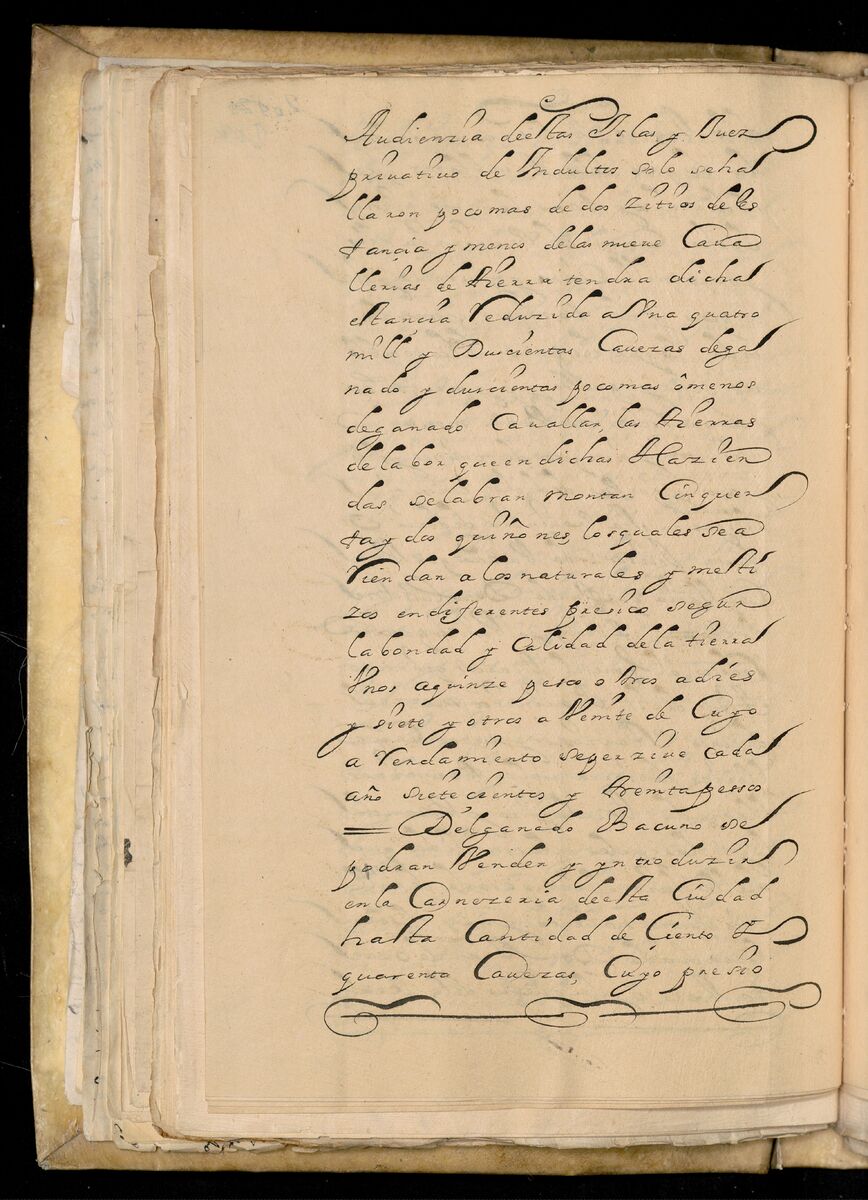 Audienzia deestas Islas, y Juez
privativo de Indultos solo seha
llaron poco mas de dos zitios de Es
tancia y menos delas nueve Cava
llerias de tierra tendra dicha
estancia Reduzida a Una quatro
mill y Duscientas Cavezas dega
nado y duscientas poco mas ô menos
deganado Cavallar, las tierras
de labor que en dichas Hazien
das selabran montan Cinquen
ta y dos quiñones, los quales se a
Riendan a los naturales y mesti
zos en diferentes presios segun
la bondad y Calidad dela tierra
Unos aquinze pesos otros a dies
y siete y otros a Veinte de Cuyo
a Rendamiento seperzive cada
año sietecientos y treinta pessos
= Delganado Bacuno se
podran Vender y yntroduzir
en la Carnezeria deesta Ciudad
hasta Cantidad de Ciento y
quarenta Cavezas, Cuyo presio